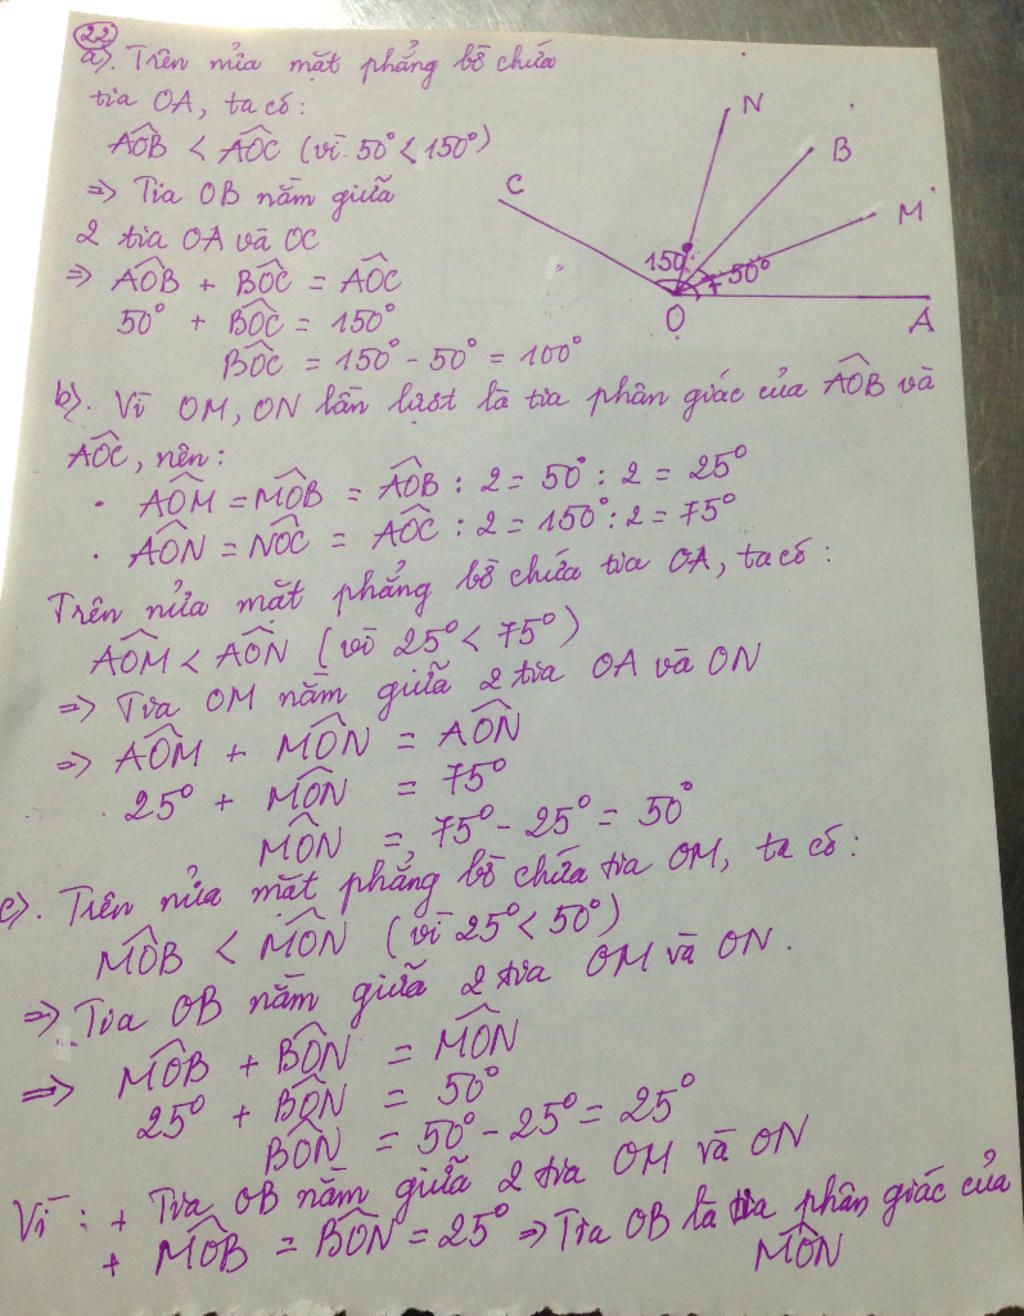 22
a). Trên nửa mặt phẳng bờ chứa
tia OA, ta có:
AÔB < AÔC (vì 50° < 150°)
=> Tia OB nằm giữa
2 tia OA và OC
=> AÔB + BÔC = AÔC
50° + BÔC = 150°
BÔC = 150° - 50° = 100°
N
B
C
M
150°
50°
O
A
b). Vì OM, ON lần lượt là tia phân giác của AÔB và
AÔC, nên:
· AÔM = MÔB = AÔB : 2 = 50° : 2 = 25°
· AÔN = NÔC = AÔC : 2 = 150° : 2 = 75°
Trên nửa mặt phẳng bờ chứa tia OA, ta có:
AÔM < AÔN (vì 25° < 75°)
=> Tia OM nằm giữa 2 tia OA và ON
=> AÔM + MÔN = AÔN
25° + MÔN = 75°
MÔN = 75° - 25° = 50°
c). Trên nửa mặt phẳng bờ chứa tia OM, ta có:
MÔB < MÔN (vì 25° < 50°)
=> Tia OB nằm giữa 2 tia OM và ON.
=> MÔB + BÔN = MÔN
25° + BÔN = 50°
BÔN = 50° - 25° = 25°
Vì: + Tia OB nằm giữa 2 tia OM và ON
+ MÔB = BÔN = 25° => Tia OB là tia phân giác của
MÔN